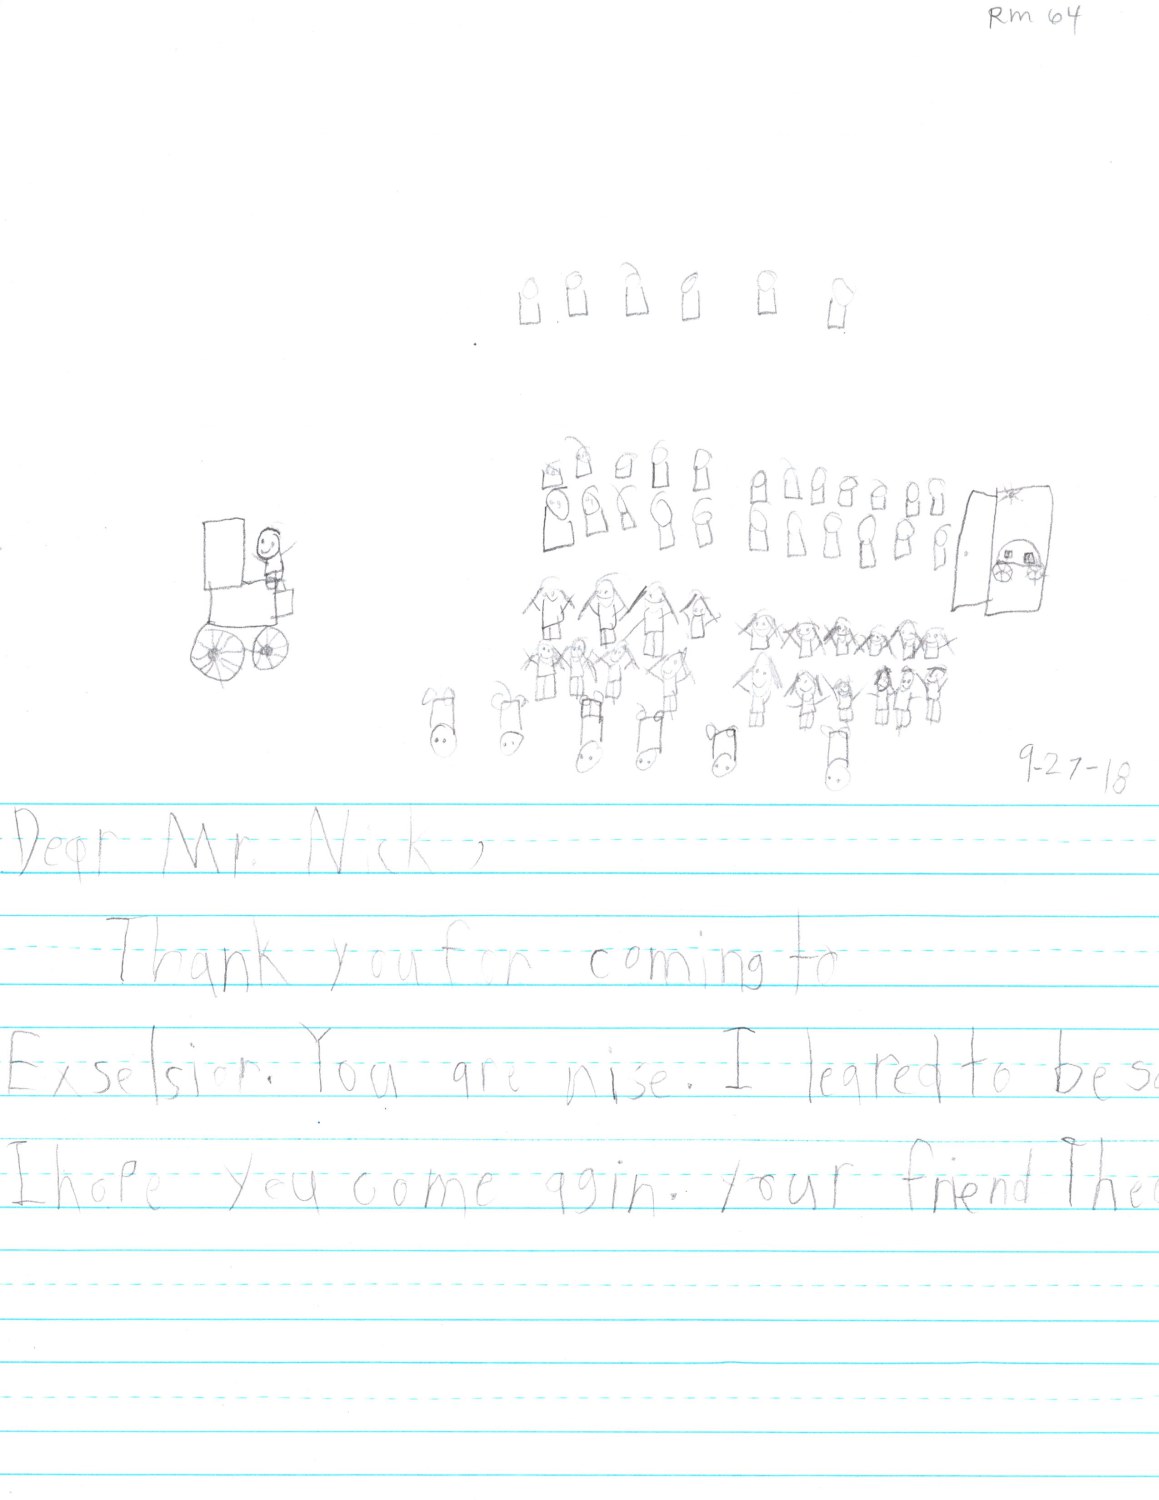 Rm 64
9-27-18
Dear Mr. Nick,
Thank you for coming to
Exselsior. You are nise. I leared to be
I hope you come agin. your friend